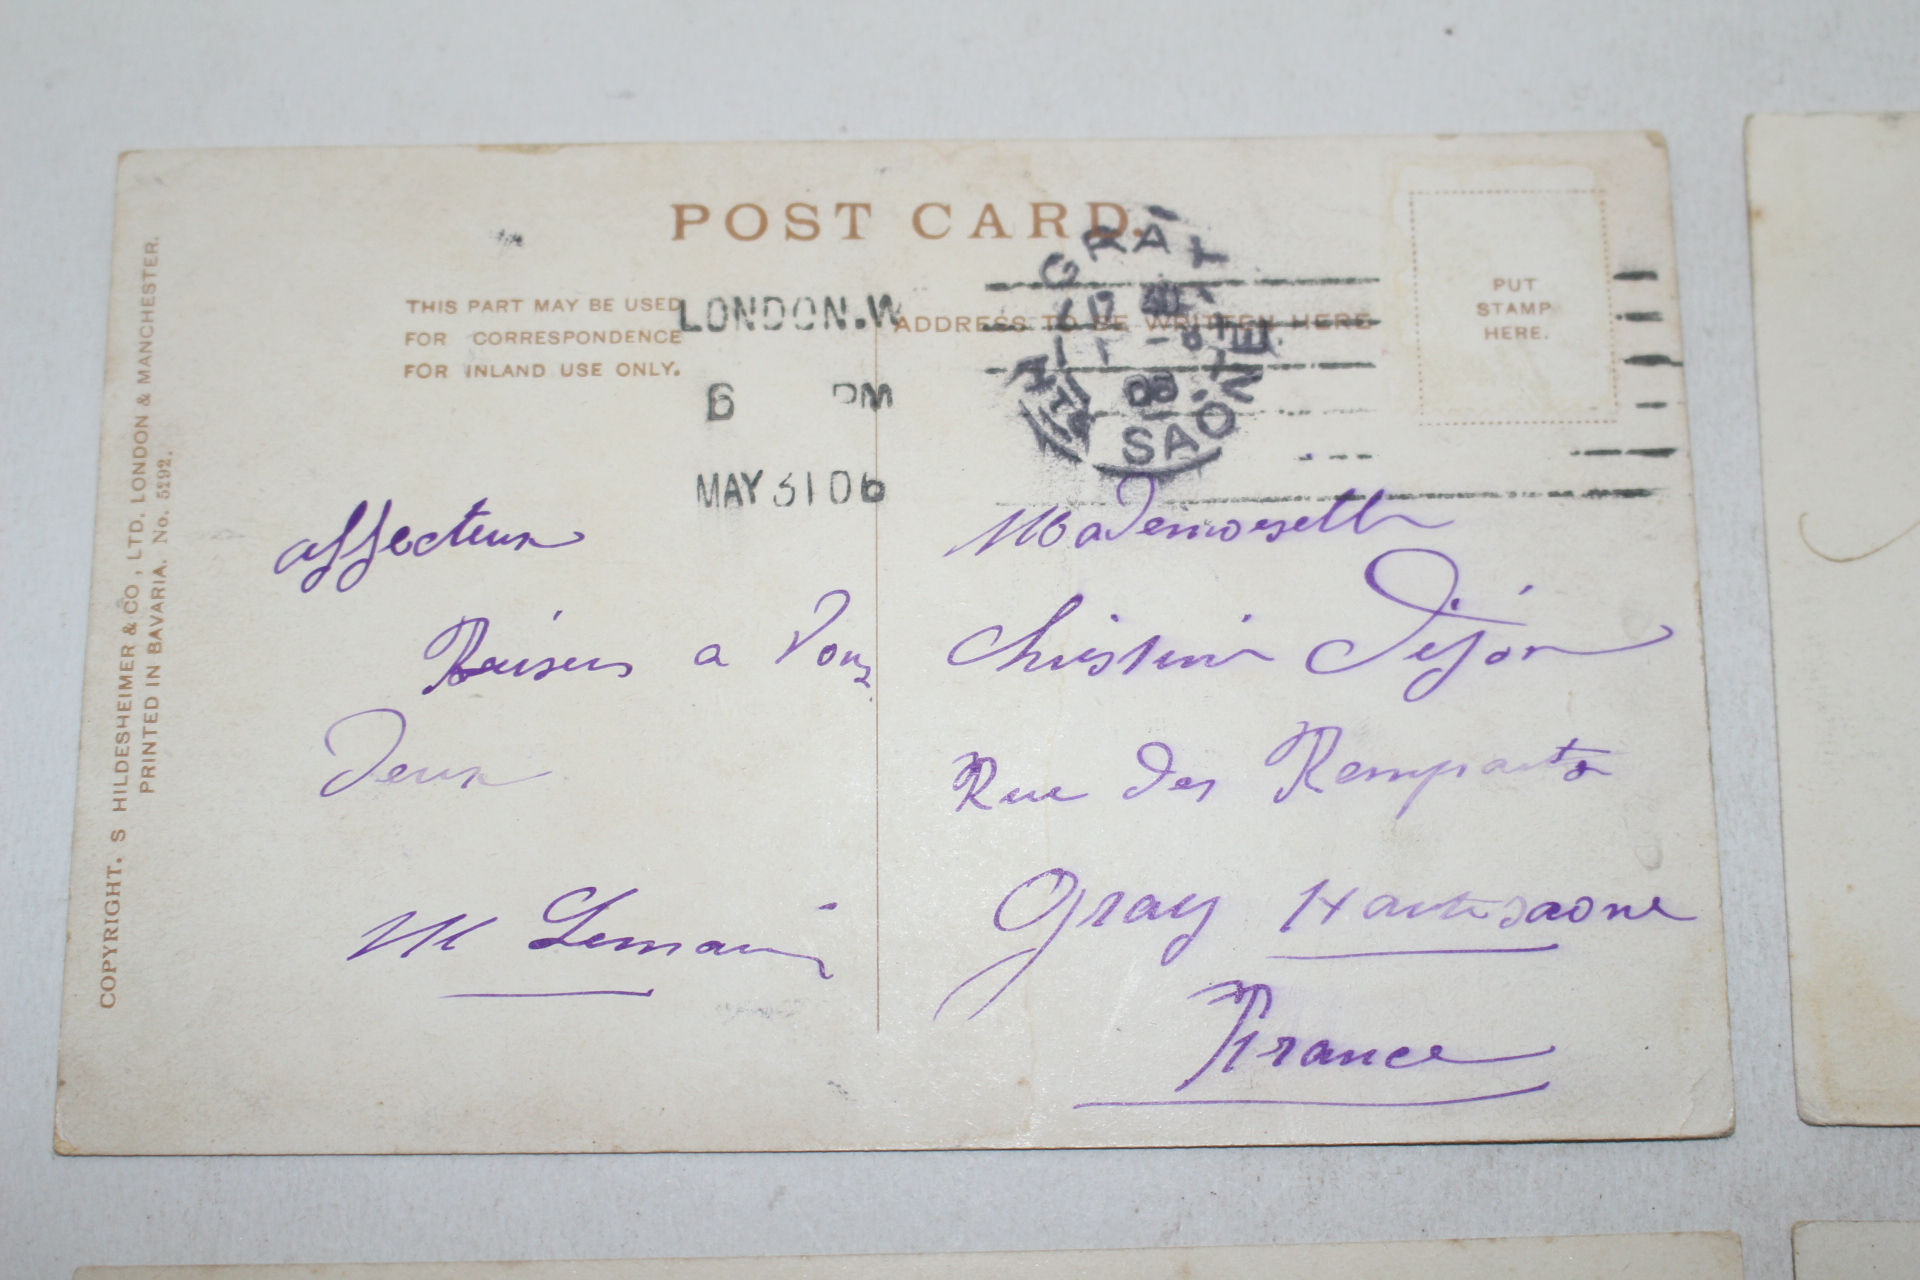 POST CARD.
THIS PART MAY BE USED
FOR CORRESPONDENCE
FOR INLAND USE ONLY.
ADDRESS TO BE WRITTEN HERE
PUT
STAMP
HERE.
LONDON.W
6 PM
MAY 31 06
GRAY
SAÔNE
affecteux
Baisers a Vous
Deux
M Lemaire
Mademoiselle
Christine Dijon
Rue des Remparts
Gray Haute Saone
France
COPYRIGHT. S HILDESHEIMER & CO., LTD. LONDON & MANCHESTER.
PRINTED IN BAVARIA. No. 5292.